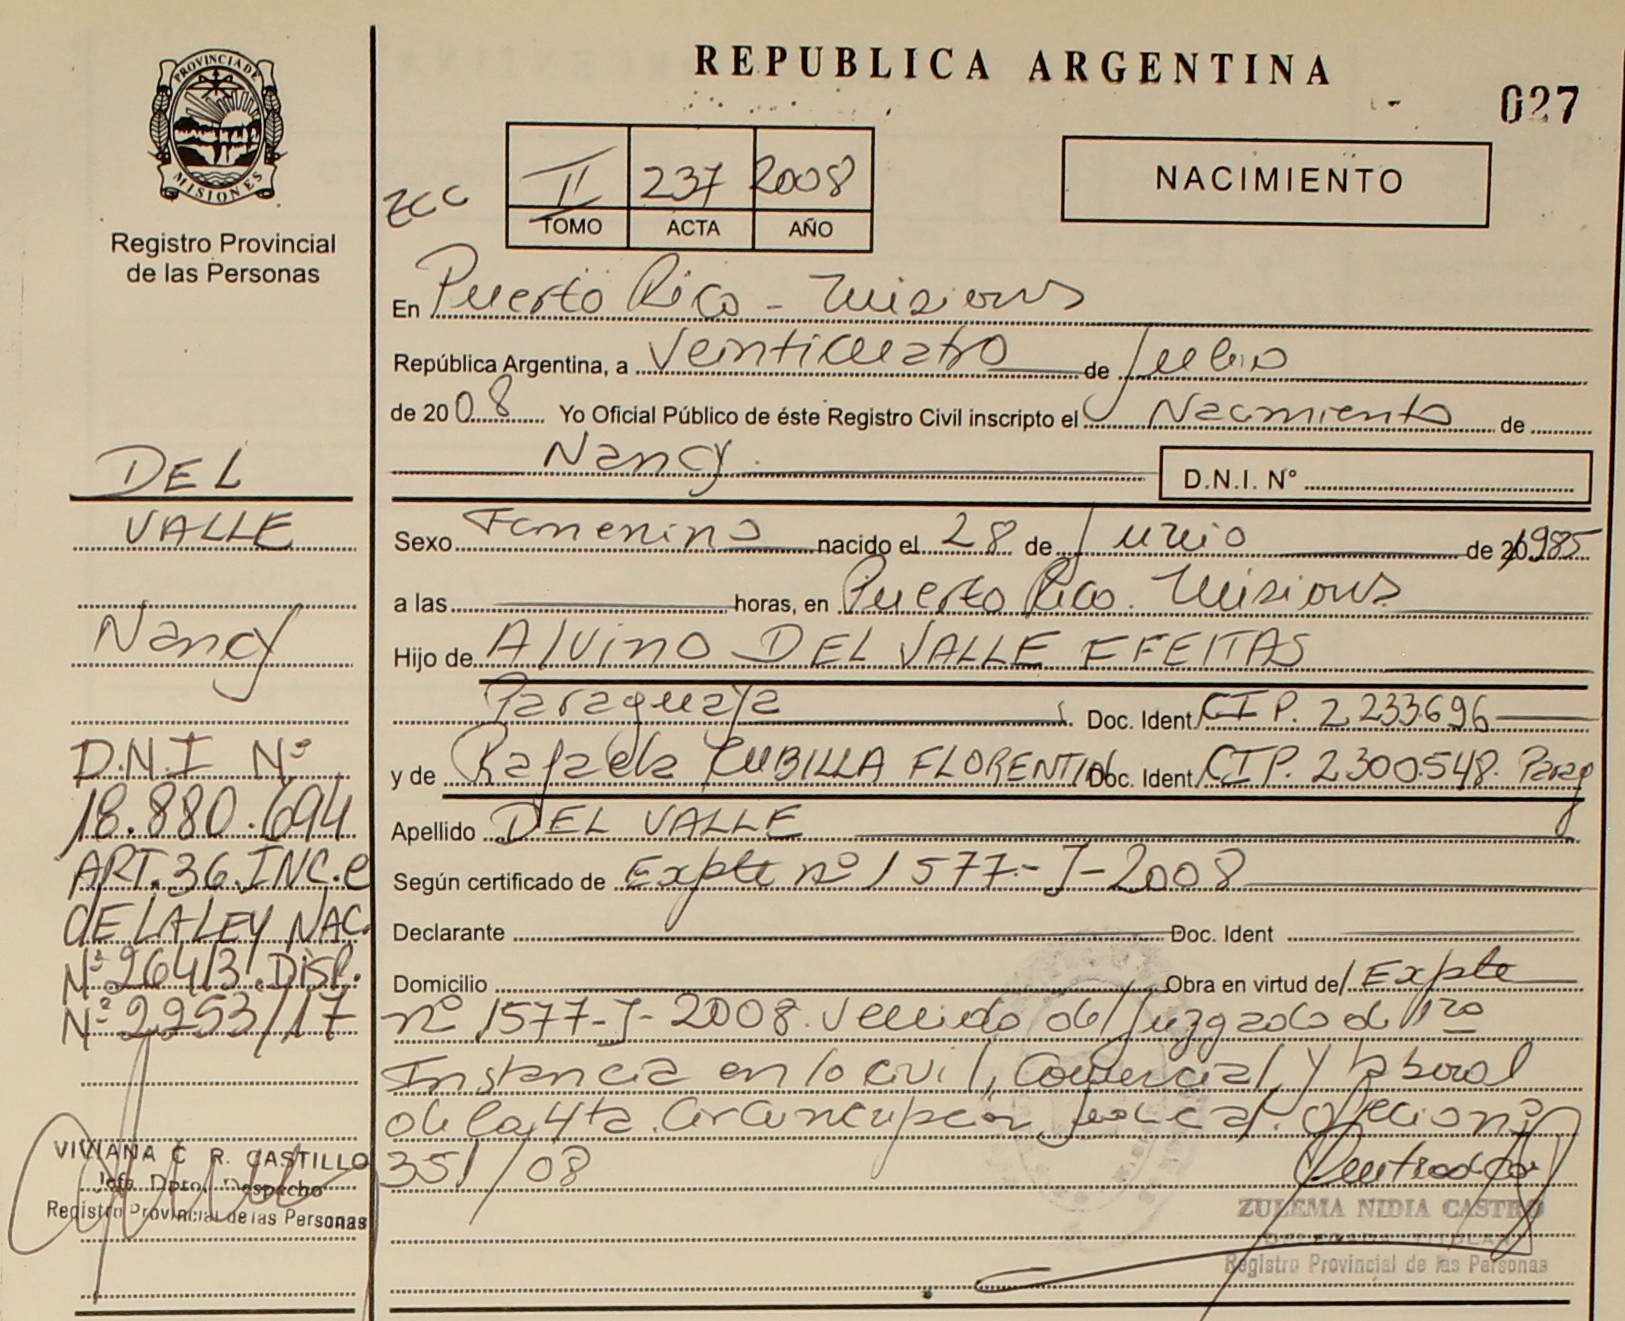 REPUBLICA ARGENTINA
027
PROVINCIA DE
MISIONES
Registro Provincial
de las Personas
II 237 2008
TOMO ACTA AÑO
NACIMIENTO
En Puerto Rico - Misiones
República Argentina, a Veinticuatro de Julio
de 2008 Yo Oficial Público de éste Registro Civil inscripto el Nacimiento de
Nancy D.N.I. N°
Sexo Femenino nacido el 28 de Junio de 1985
a las horas, en Puerto Rico. Misiones
Hijo de Alvino DEL VALLE EFEITAS
Paraguaya Doc. Ident. CIP. 2.233.696
y de Rafaela CUBILLA FLORENTIN Doc. Ident. CIP. 2.300.548. Parag
Apellido DEL VALLE
Según certificado de Expte nº 1577-J-2008
Declarante Doc. Ident
Domicilio Obra en virtud de Expte
nº 1577-J-2008. del Juzgado de 1ra
Instancia en lo civil, Comercial, y laboral
de la 4ta. Circunscripción Judicial. oficio nº
351/08
ZULEMA NIDIA CASTRO
Registro Provincial de las Personas
DEL
VALLE
Nancy
D.N.I Nº
18.880.694
ART.36.INC.C
DE LA LEY NAC.
Nº 26413.DISP.
Nº 2253/17
VIVIANA C R. CASTILLO
Jefa Dpto. Despacho
Registro Provincial de las Personas